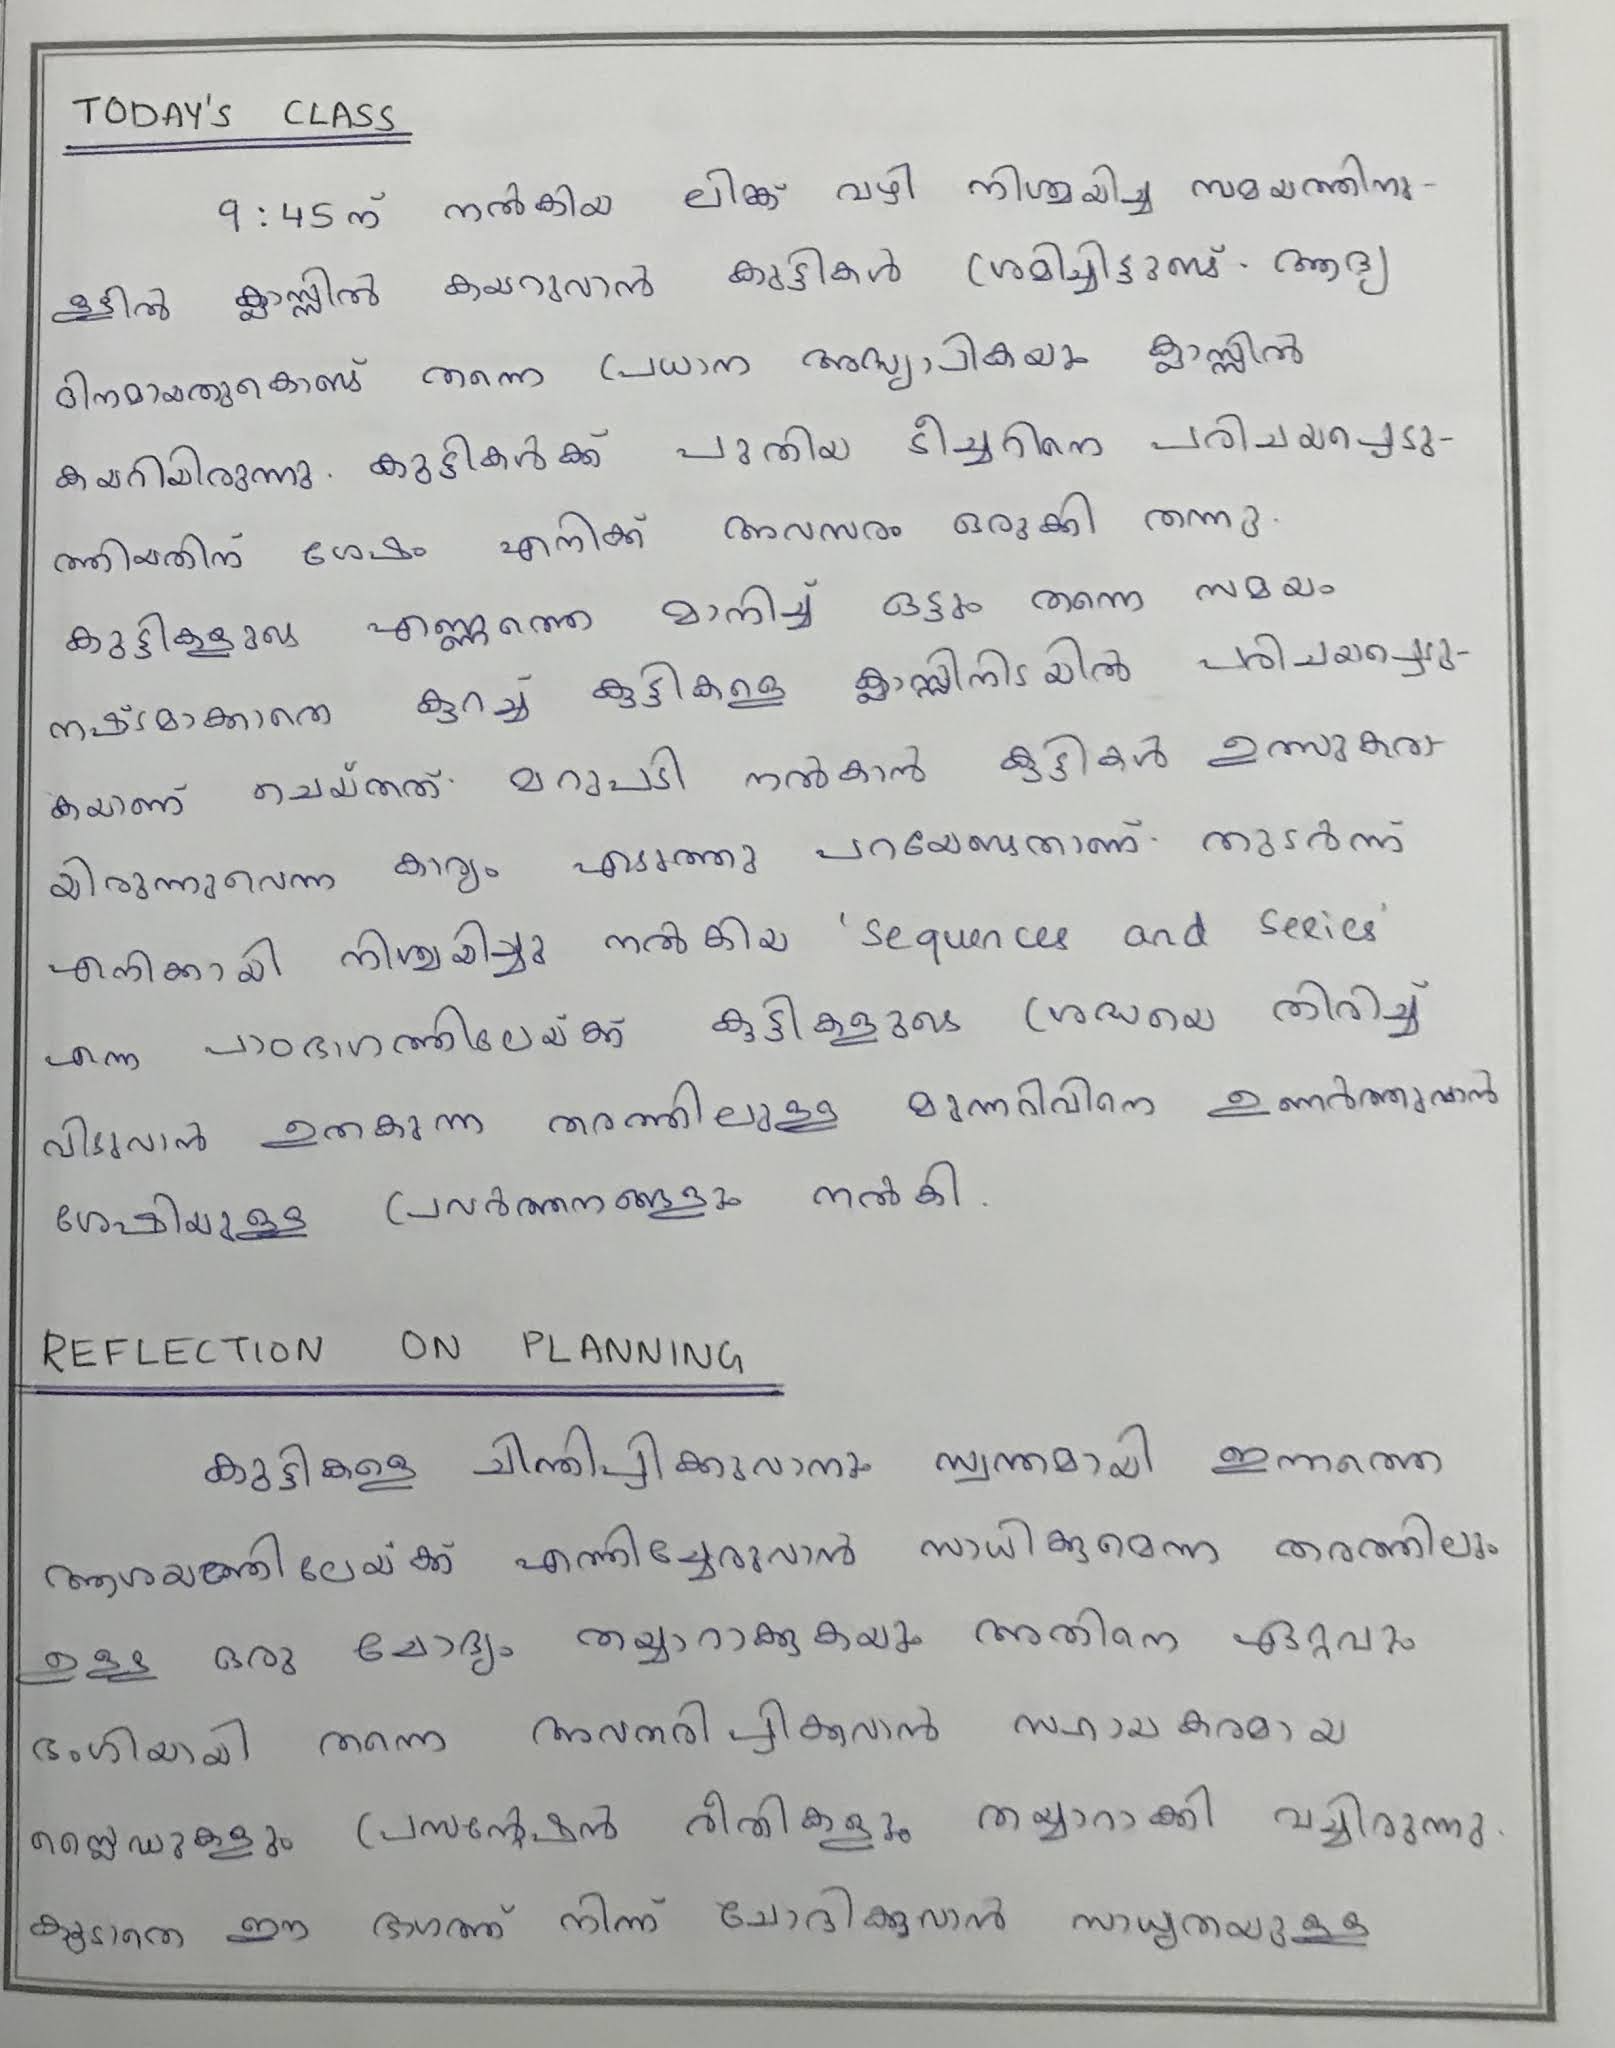 TODAY'S CLASS
9:45ന് നൽകിയ ലിങ്ക് വഴി നിശ്ചയിച്ച സമയത്തിനു-
ള്ളിൽ ക്ലാസ്സിൽ കയറുവാൻ കുട്ടികൾ ശ്രമിച്ചിട്ടുണ്ട്. ആദ്യ
ദിനമായതുകൊണ്ട് തന്നെ പ്രധാന അദ്ധ്യാപികയും ക്ലാസ്സിൽ
കയറിയിരുന്നു. കുട്ടികൾക്ക് പുതിയ ടീച്ചറിനെ പരിചയപ്പെടു-
ത്തിയതിന് ശേഷം എനിക്ക് അവസരം ഒരുക്കി തന്നു.
കുട്ടികളുടെ എണ്ണത്തെ മാനിച്ച് ഒട്ടും തന്നെ സമയം
നഷ്ടമാക്കാതെ കുറച്ച് കുട്ടികളെ ക്ലാസ്സിനിടയിൽ പരിചയപ്പെടു-
കയാണ് ചെയ്തത്. മറുപടി നൽകാൻ കുട്ടികൾ ഉത്സുകരാ-
യിരുന്നുവെന്ന കാര്യം എടുത്തു പറയേണ്ടതാണ്. തുടർന്ന്
എനിക്കായി നിശ്ചയിച്ചു നൽകിയ 'Sequences and Series'
എന്ന പാഠഭാഗത്തിലേയ്ക്ക് കുട്ടികളുടെ ശ്രദ്ധയെ തിരിച്ച്
വിടുവാൻ ഉതകുന്ന തരത്തിലുള്ള മുന്നറിവിനെ ഉണർത്തുവാൻ
ശേഷിയുള്ള പ്രവർത്തനങ്ങളും നൽകി.
REFLECTION ON PLANNING
കുട്ടികളെ ചിന്തിപ്പിക്കുവാനും സ്വന്തമായി ഇന്നത്തെ
ആശയത്തിലേയ്ക്ക് എത്തിച്ചേരുവാൻ സാധിക്കുമെന്ന തരത്തിലും
ഉള്ള ഒരു ചോദ്യം തയ്യാറാക്കുകയും അതിനെ ഏറ്റവും
ഭംഗിയായി തന്നെ അവതരിപ്പിക്കുവാൻ സഹായകരമായ
സ്ലൈഡുകളും പ്രസന്റേഷൻ രീതികളും തയ്യാറാക്കി വച്ചിരുന്നു.
കൂടാതെ ഈ ഭാഗത്ത് നിന്ന് ചോദിക്കുവാൻ സാധ്യതയുള്ള